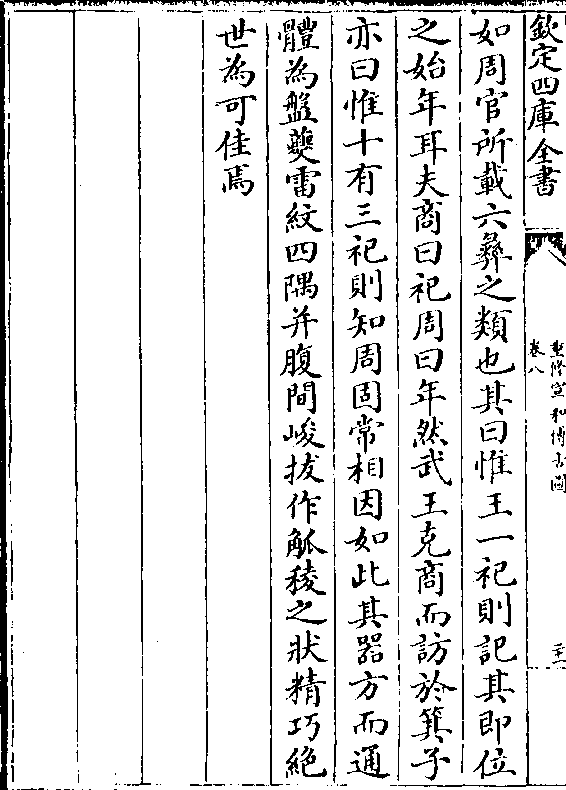 欽定四庫全書
重修宣和博古圖
卷八
二十一
如周官所載六彝之類也其曰惟王一祀則記其即位
之始年耳夫商曰祀周曰年然武王克商而訪於箕子
亦曰惟十有三祀則知周固常相因如此其器方而通
體為盤夔雷紋四隅并腹間峻拔作觚稜之狀精巧絶
世為可佳焉